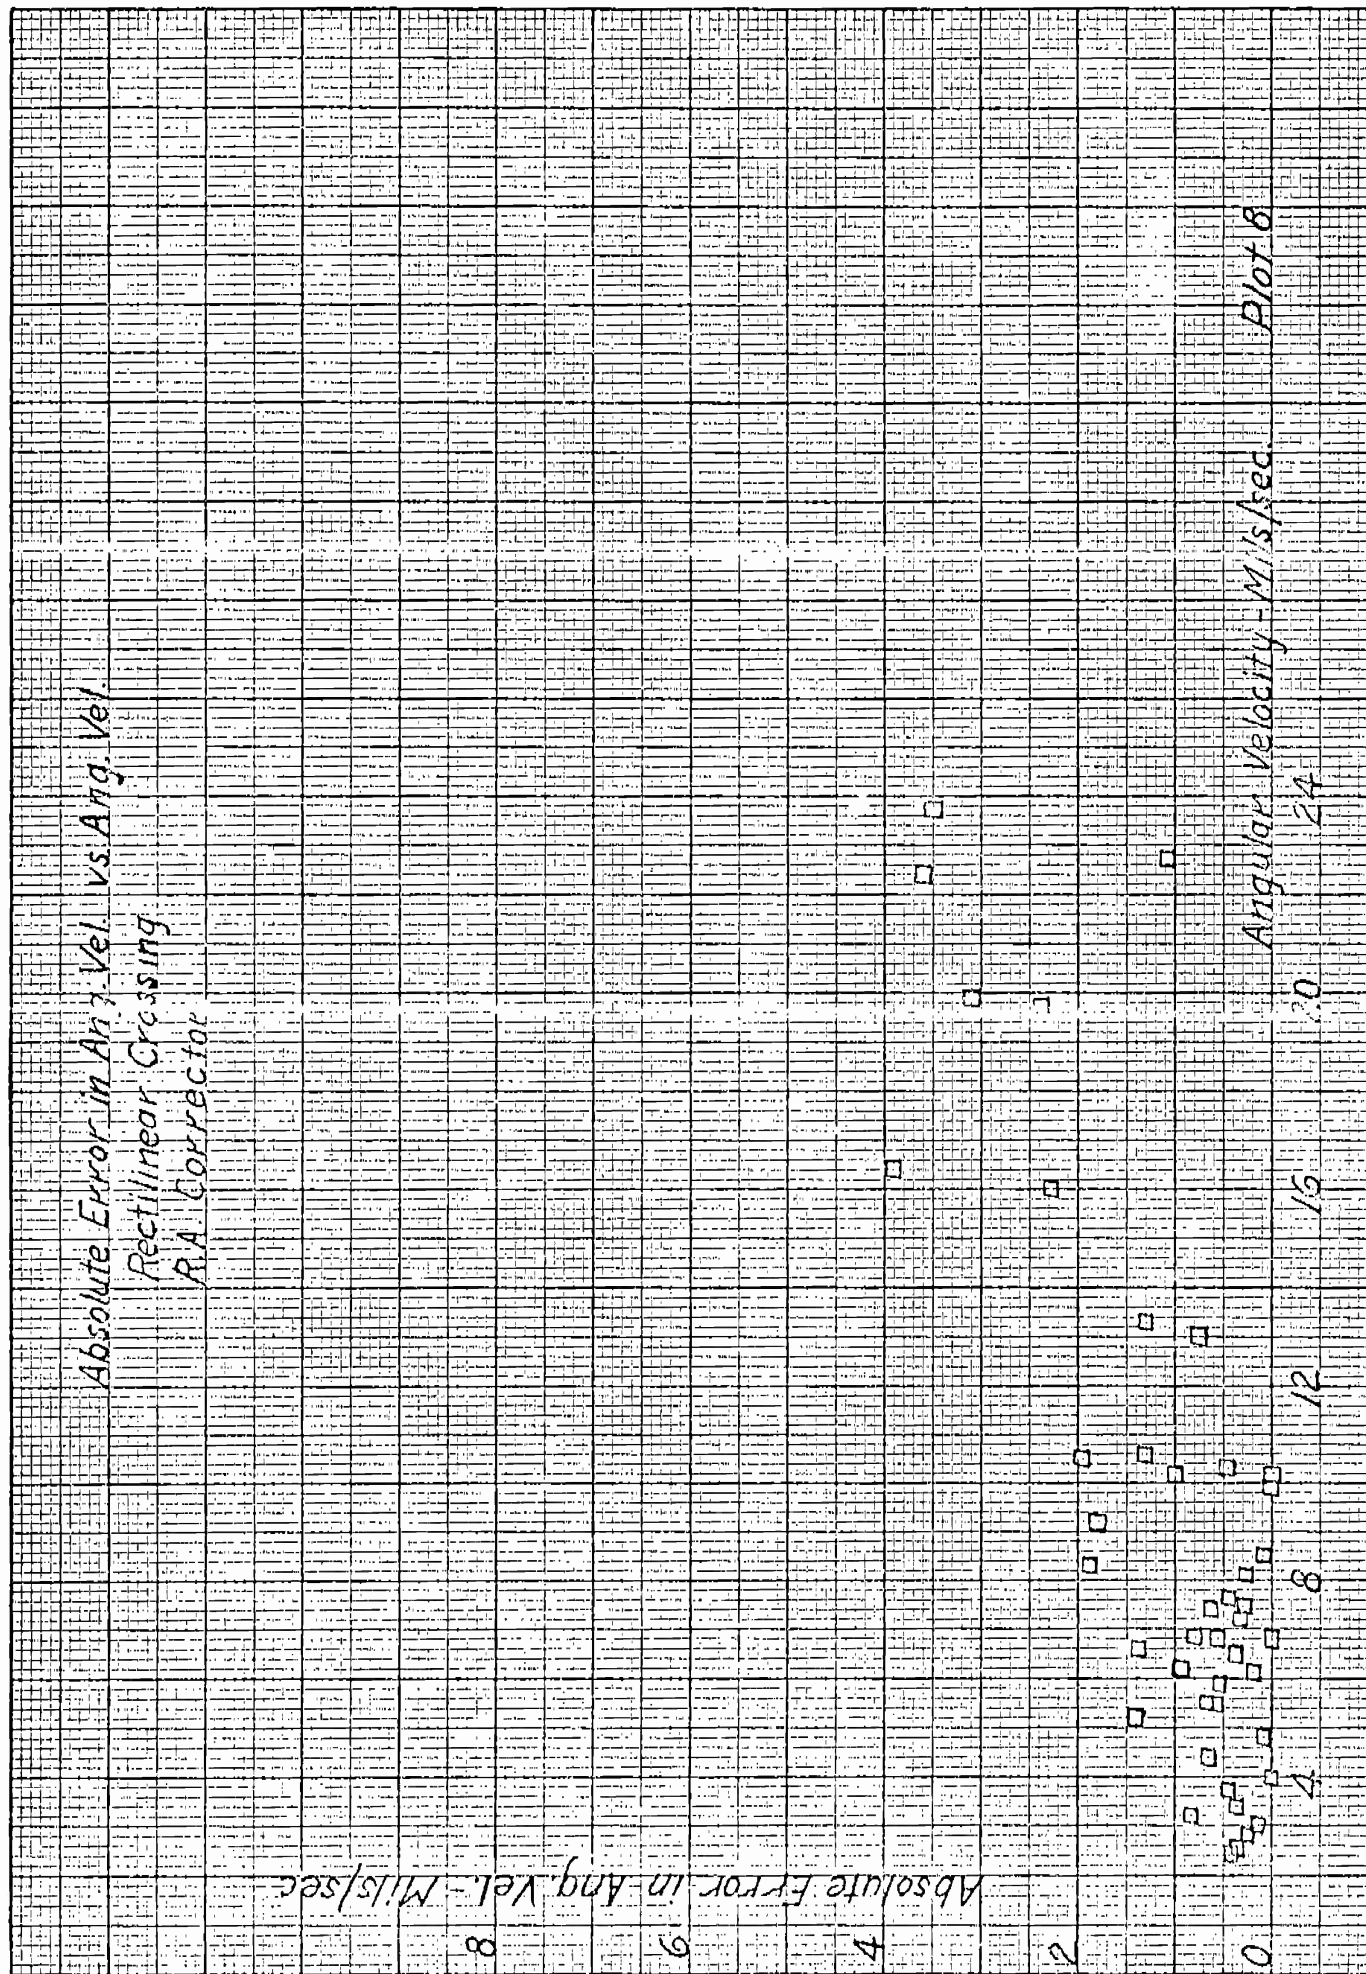 Absolute Error in Ang. Vel. vs. Ang. Vel.
Rectilinear Crossing
R.A. Corrector
Absolute Error in Ang. Vel. - Mils/sec
8
6
4
2
0
4 8 12 16 20 24
Angular Velocity - Mils/sec. Plot 8